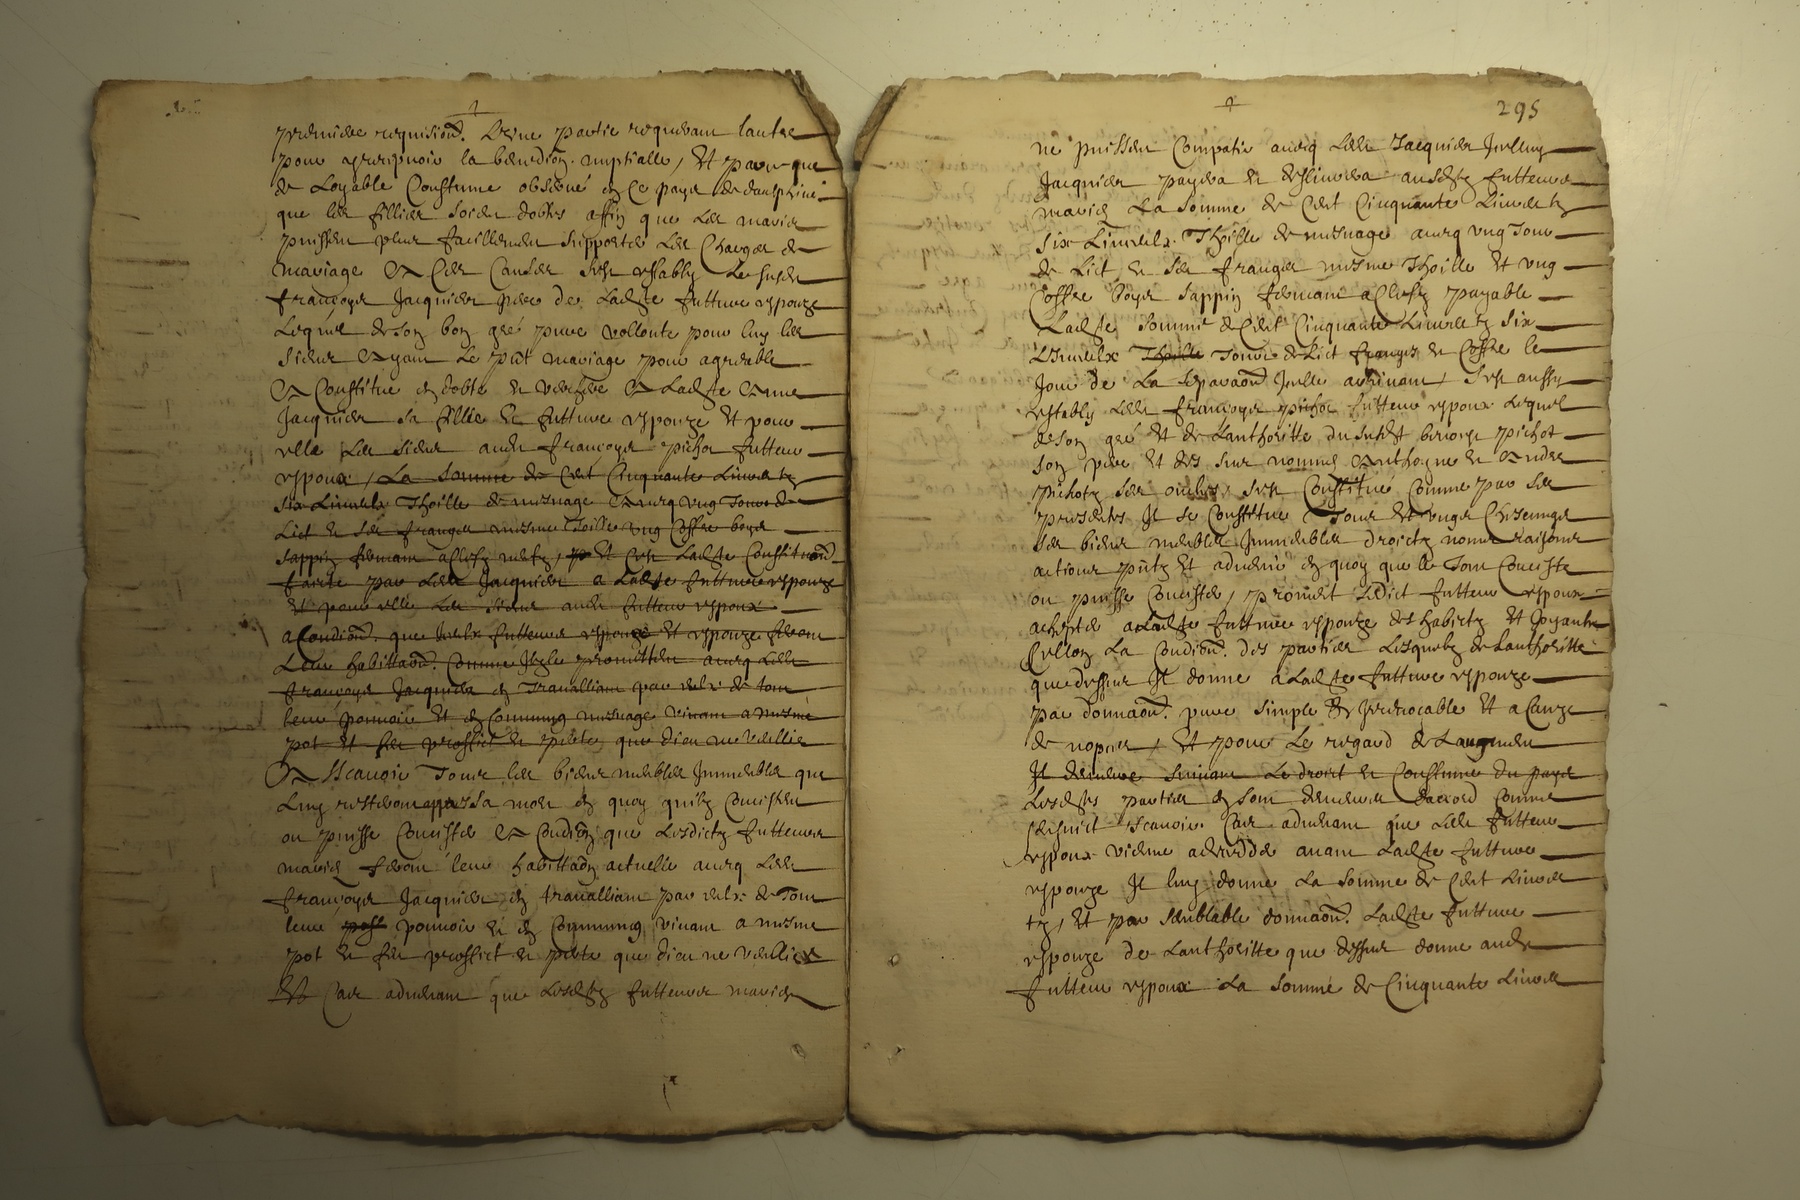 premiere requision. L'une partie requerant lautre
pour apprehandre la benediction nuptialle, Et parce que
de Loyable Coustume observé en ce pays de daulphiné
que les fillies soient dottés affin que les maris
puissent plus facillement supporter les Charges de
mariage a ces Causes s'est estably Le susdit
françoys Jacquier pere de Ladite future espouze
Lequel de son bon gré pure vollonté pour luy les
siens ayant le pnt mariage pour agreable
a Constitué en dotte et verchere a Ladite Anne
Jacquier sa fillie et future espouze et pour
elle les siens audit françoys pichot futeur
espoux, La somme de Cent Cinquante Livres tz
six Linceulx Thoille de mesnage avecq ung Tour de
Lict et ses franges mesme Toille ung Coffre boys
sappin fermant a Clefz neufz, Et C'est Ladite Constituon
faicte par Ledit Jacquier a Ladite future espouze
et pour elle Les siens audit futeur espoux
a Condion. que lesdits futeurs espoux Et espouze feront
Leur habittaon. Comme Ilz promettent avecq Ledit
françoys Jacquier en Travalliant par eulx de tout
leur pouvoir Et en Commung mesnage vivant a mesme
pot et feu proffict et perte, que dieu ne veillie
A Scavoir Tous les biens meubles Immeubles que
Luy resteront appres sa mort en quoy quilz Concistent
ou puisse Concister a Condion que Lesdictz futeurs
mariez feront leur habittaon actuelle avecq Ledit
françoys Jacquier en travalliant par eulx de Tout
leur post pouvoir et en Commung vivant a mesme
pot et feu proffict et perte que dieu ne veillie
Et Cas advenant que Lesdits futeurs mariez
295
ne puissent Compatir avecq Ledit Jacquier Icelluy
Jacquier payera et deslivrera ausdits futeurs
mariez La somme de Cent Cinquante Livres tz
six Linceulx Thoille de mesnage avecq ung Tour
de Lict et ses franges mesme Thoille Et ung
Coffre boys sappin fermant a Clefz payable
Ladite somme de Cent Cinquante Livres tz six
Linceulx Thoille Tour de Lict franges et Coffre le
Jour de La separaon Icelle advenant, s'est aussy
estably Ledit françoys pichot futeur espoux Lequel
de son gré Et de Lauthoritte du susdit pichot
son pere Et des sieurs nommés Anthoyne et Andre
pichotz ses oncles, s'est Constitué Comme par ses
presentes Il se Constitue Tous Et Ungs Chescungs
ses biens meubles Immeubles droictz noms raisons
actions pntz Et advenir en quoy que le Tout Conciste
ou puisse Concister, promet Ledict futeur espoux
achepter a Ladite future espouze des habictz Et Joyaulx
sellon La Condion. des parties Lesquelz de Lauthoritte
que dessus Il donne a Ladite future espouze
par donnaon. pure simple et Irrevocable Et a Cauze
de nopces, Et pour Le regard de Laugment
Il demeure suivant Le droict et Coustume du pays
Lesdites parties en sont demeurés daccord Comme
sensuict Scavoir Cas advenant que Ledit futeur
espoux vienne a decedder avant Ladite future
espouze Il luy donne La somme de Cent Livres
tz, Et par semblable donnaon. Ladite future
espouze de Lauthoritte que dessus donne audit
futeur espoux La somme de Cinquante Livres